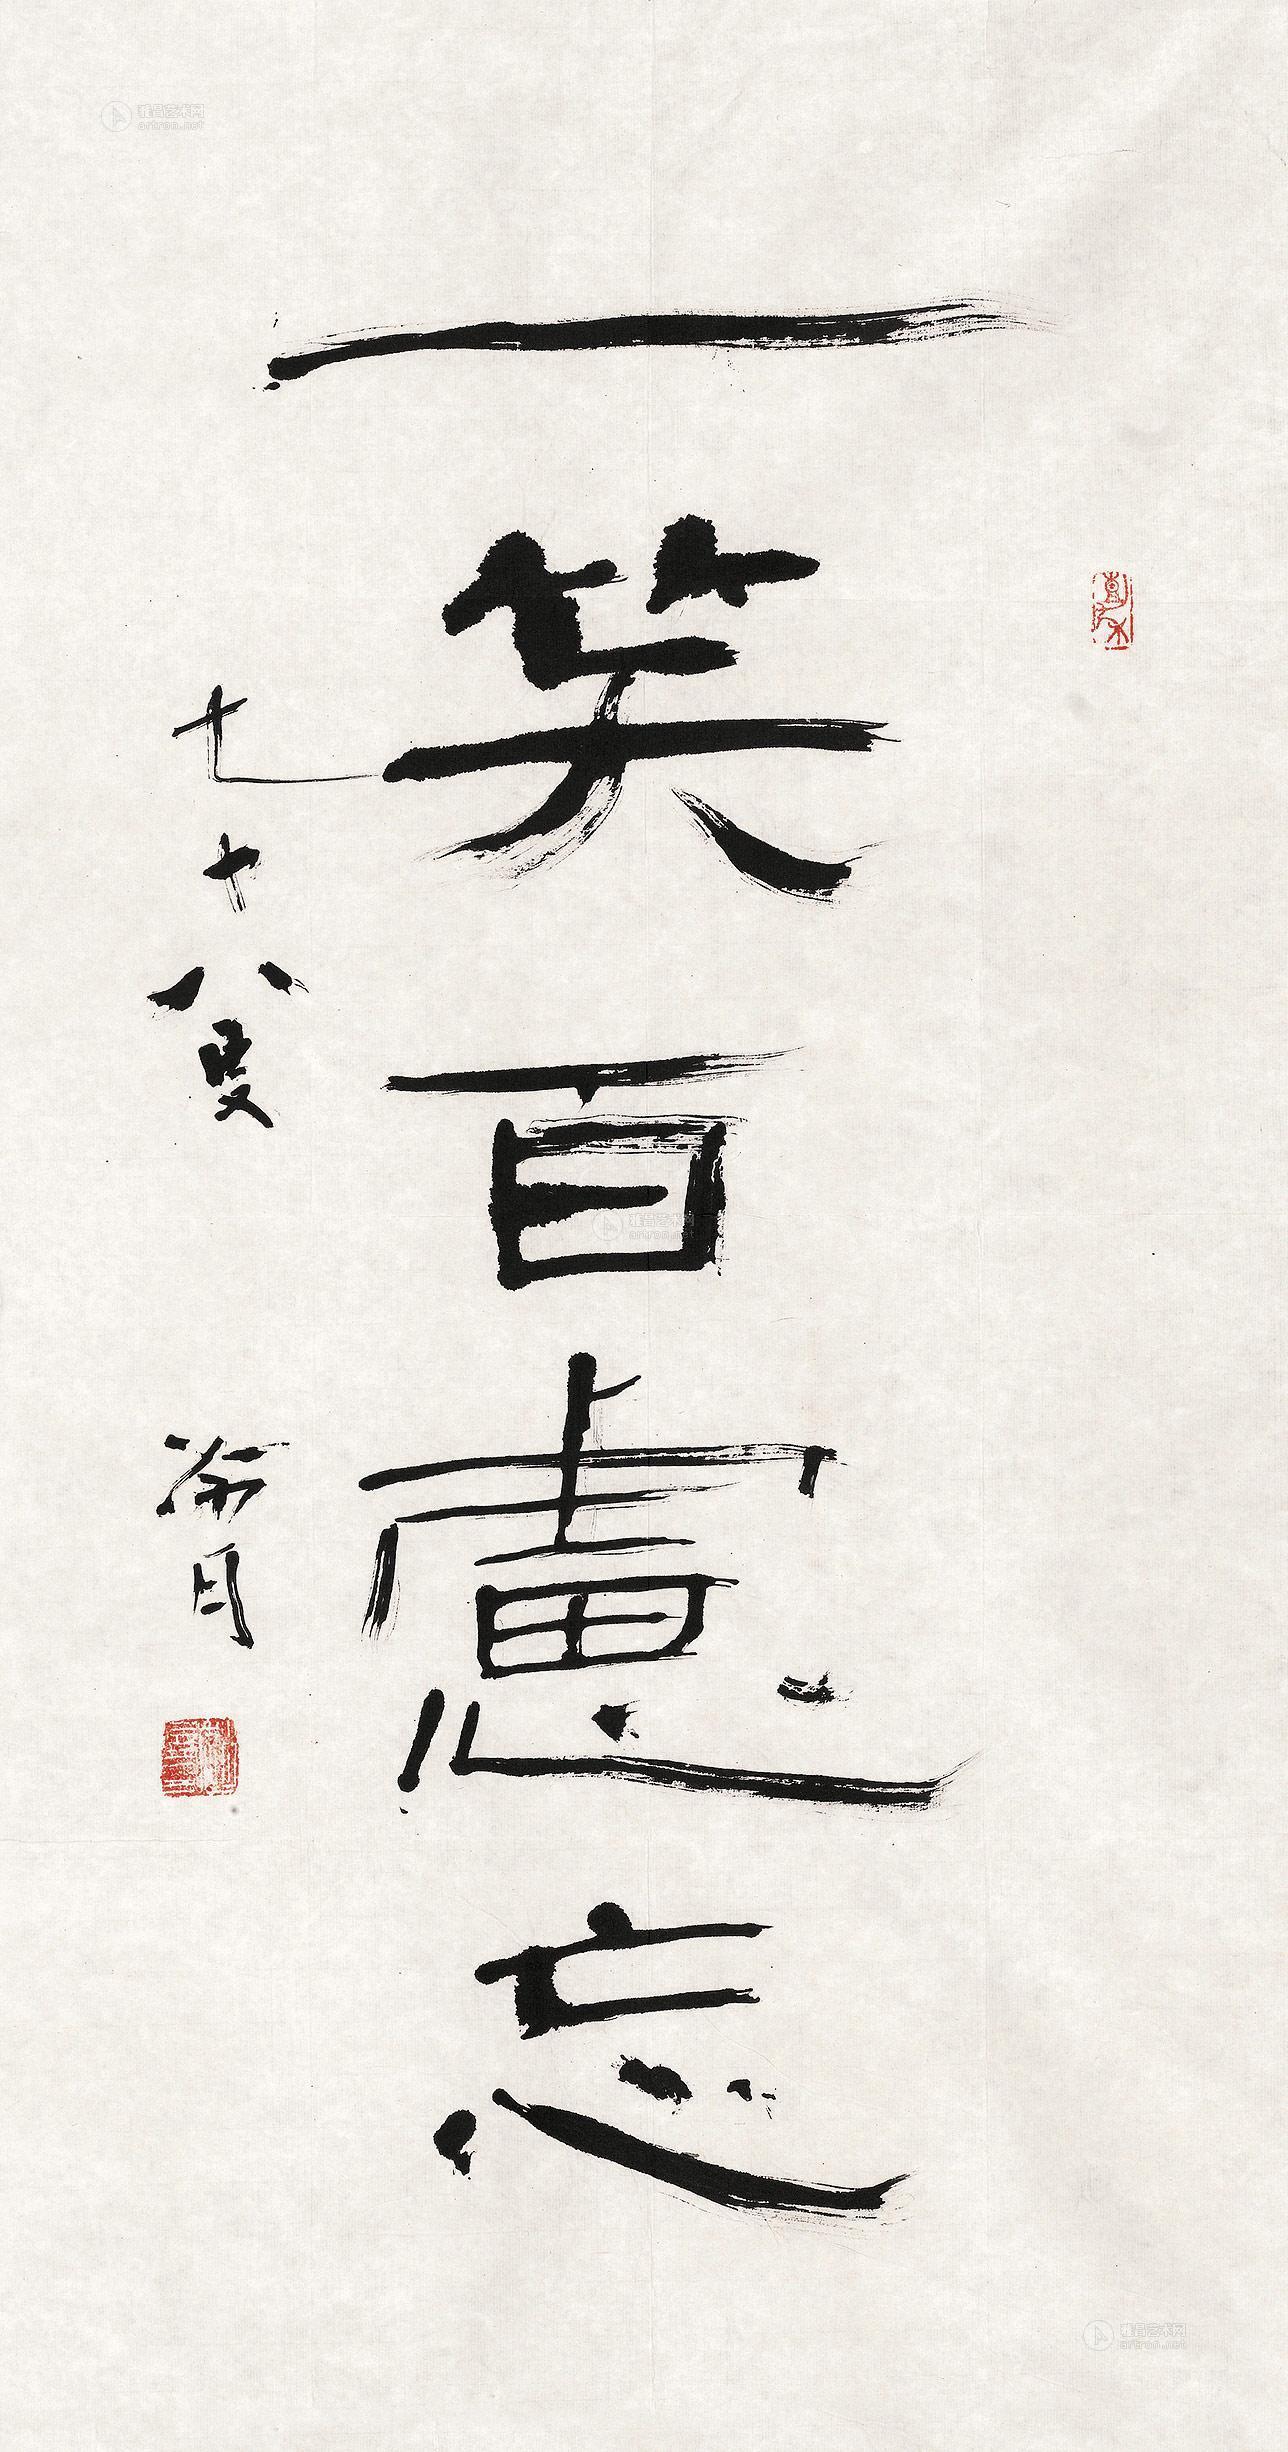 雅昌艺术网
artron.net
一笑百慮忘
七十八叟
雅昌艺术网
artron.net
雅昌艺术网
artron.net